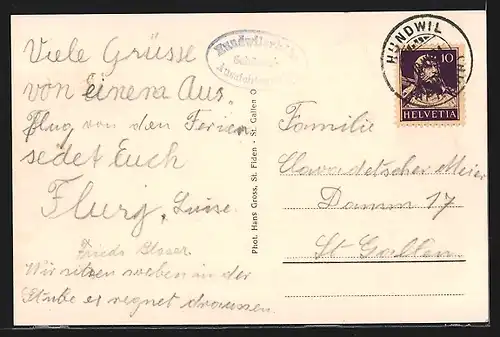 Viele Grüsse
von einem Aus-
flug von den Ferien
sedet Euch
Flurg, Luise.
Frieda Moser
Wir sitzen soeben in der
Stube es regnet draussen.
Hundwilerhöhe
Phot. Hans Gross, St. Fiden - St. Gallen O
HUNDWIL
10
HELVETIA
Familie
Clavadetscher Meier
Damm 17
St Gallen